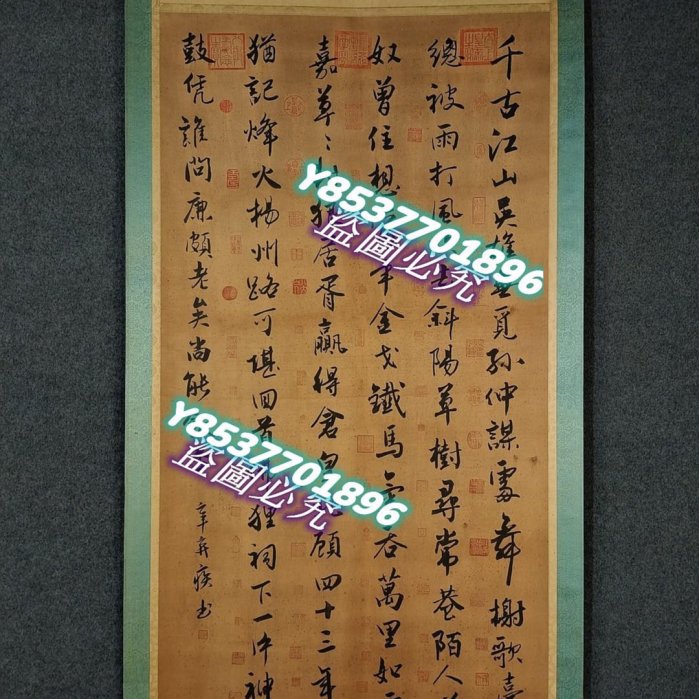 千古江山英雄無覓孫仲謀處舞榭歌
總被雨打風去斜陽草樹尋常巷陌人
奴曾住想年金戈鐵馬氣吞萬里如
嘉草〻狼居胥贏得倉顧四十三年
猶記烽火揚州路可堪回首狸祠下一片神
鼓凭誰問廉頗老矣尚能
辛弃疾书
Y8537701896
盜圖必究
Y8537701896
盜圖必究